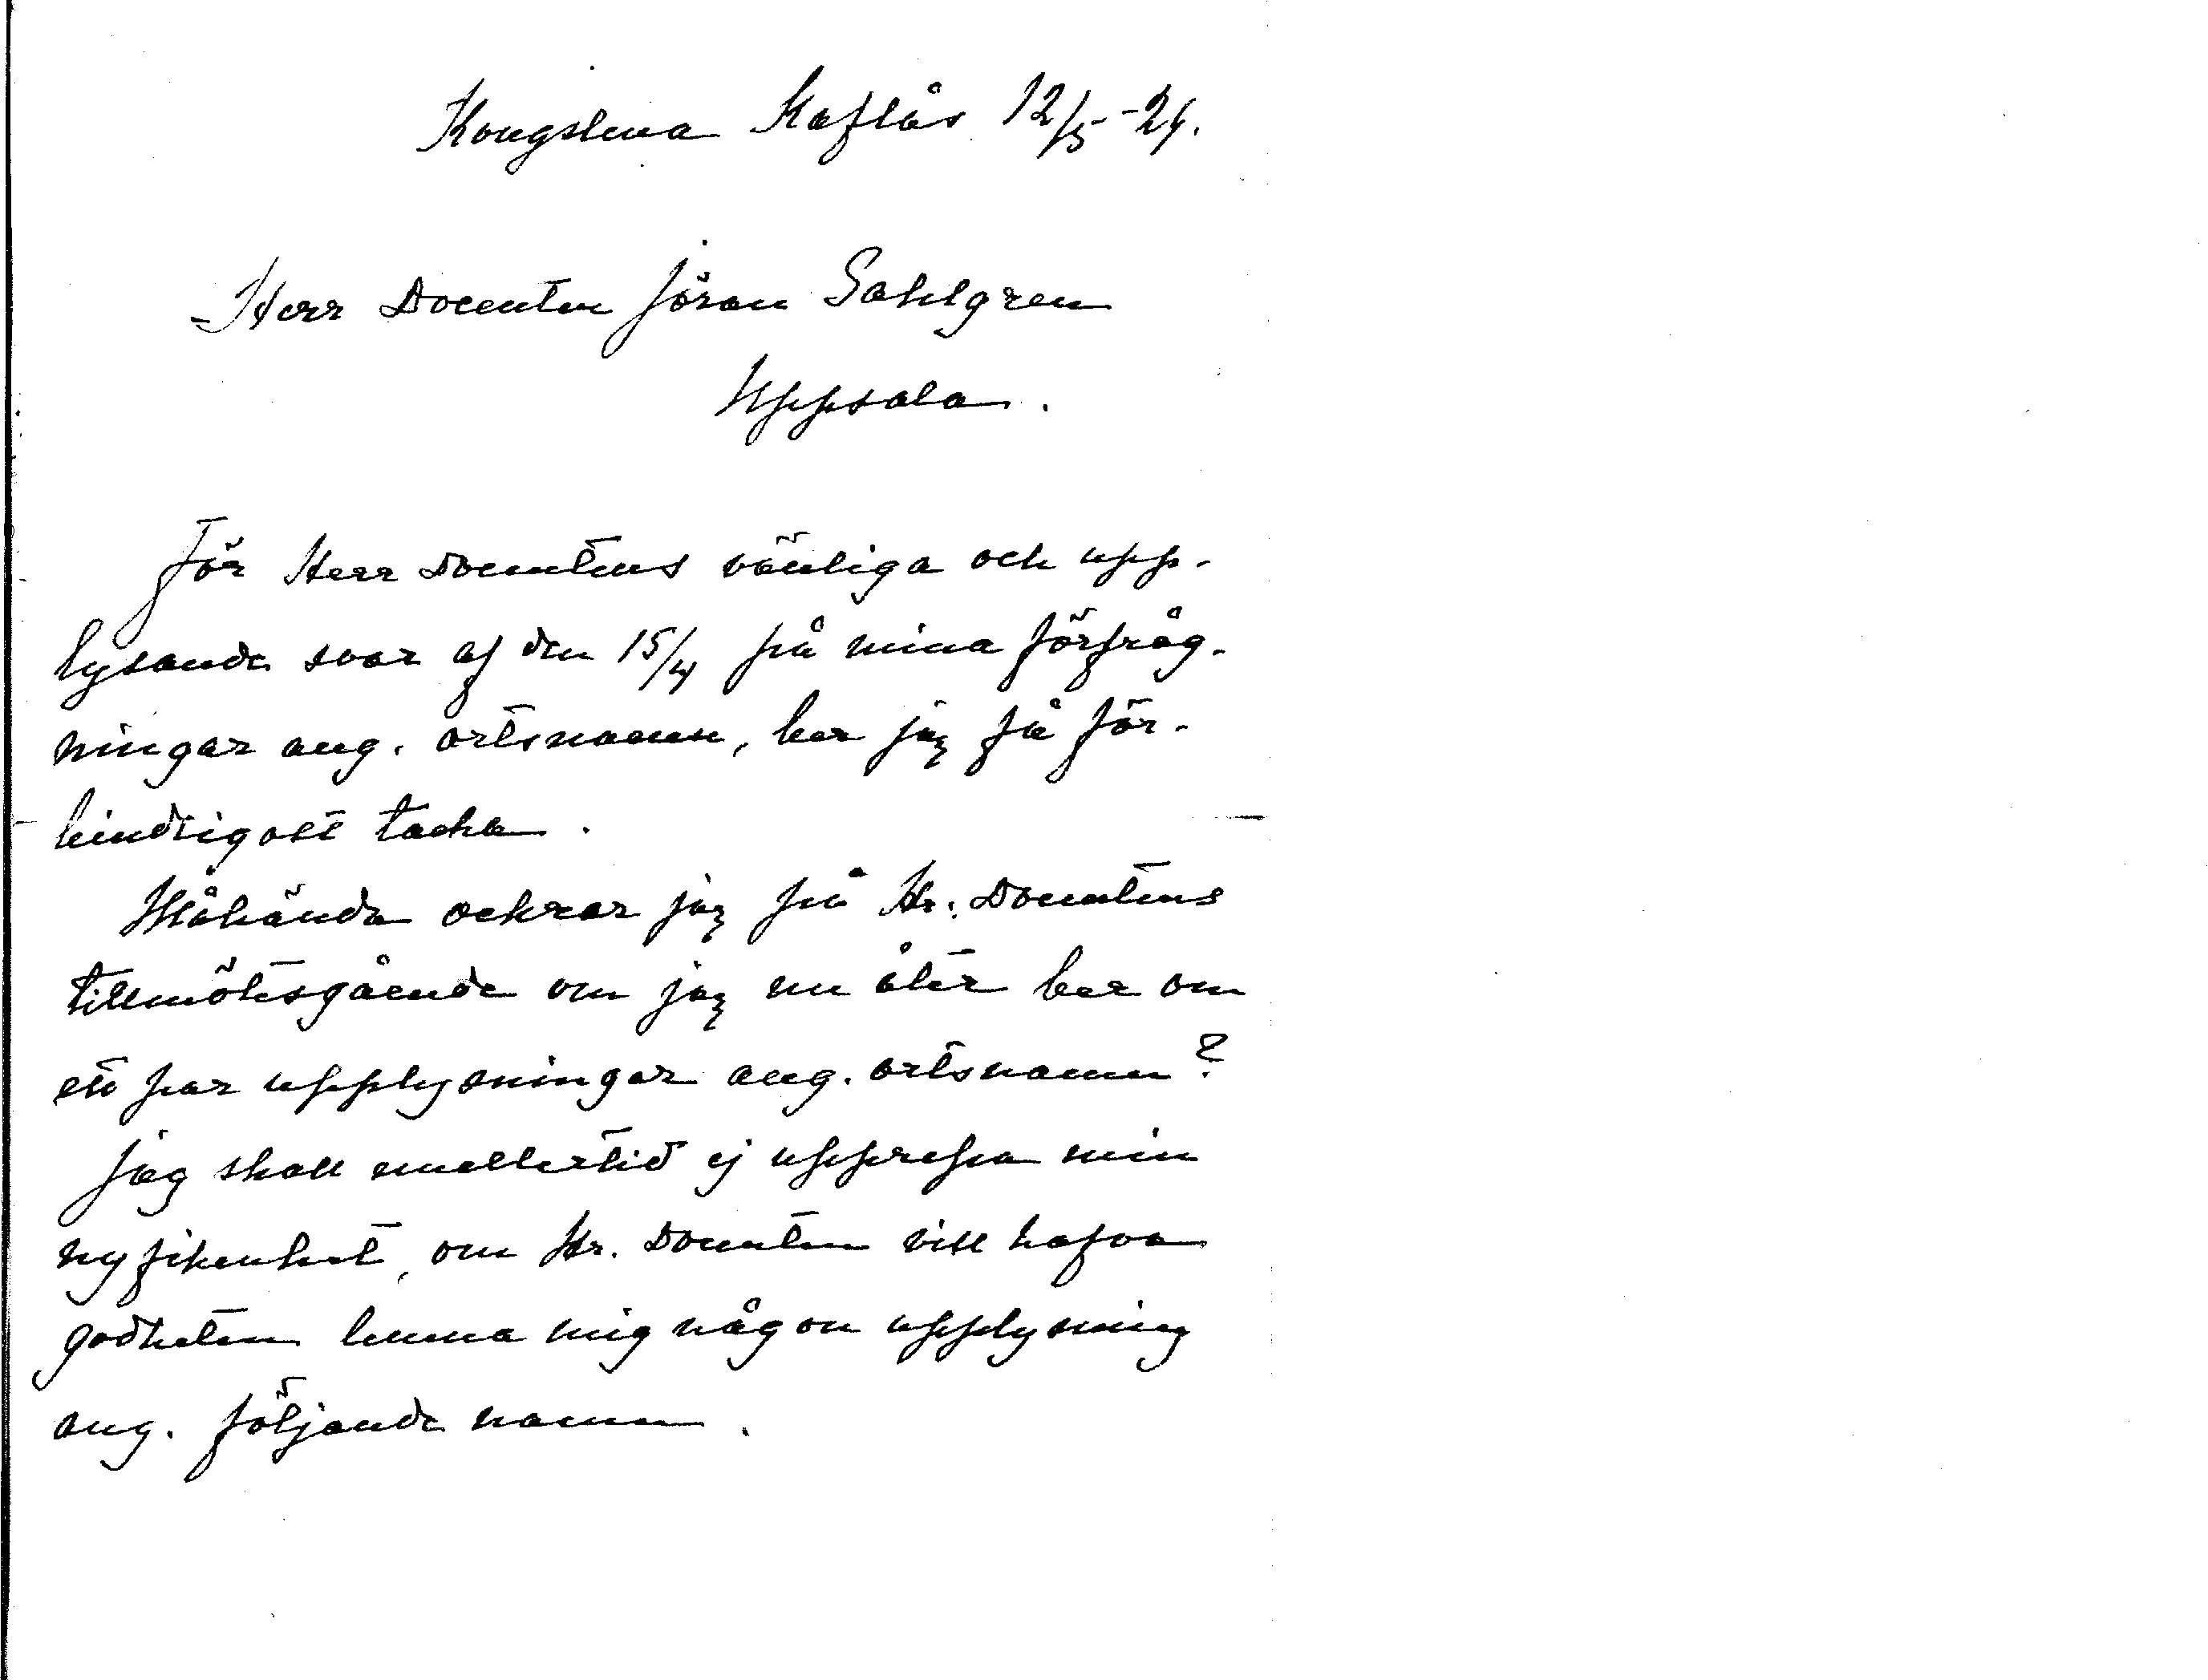 Kongslena Kaflås 12/5 -24.
Herr Docenten Jöran Sahlgren
Uppsala.
För Herr Docentens vänliga och upp-
lysande svar af den 15/4 på mina förfråg-
ningar ang. ortsnamn, ber jag få för-
bindligast tacka.
Måhända ockrar jag på Hr. Docentens
tillmötesgående om jag nu åter ber om
ett par upplysningar ang. ortsnamn?
Jag skall emellertid ej upprepa min
nyfikenhet, om Hr. Docenten vill hafva
godheten lemna mig någon upplysning
ang. följande namn.